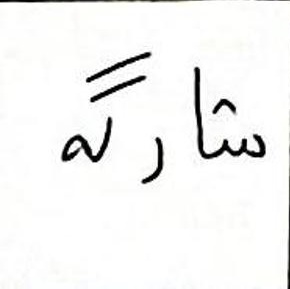 شارگه